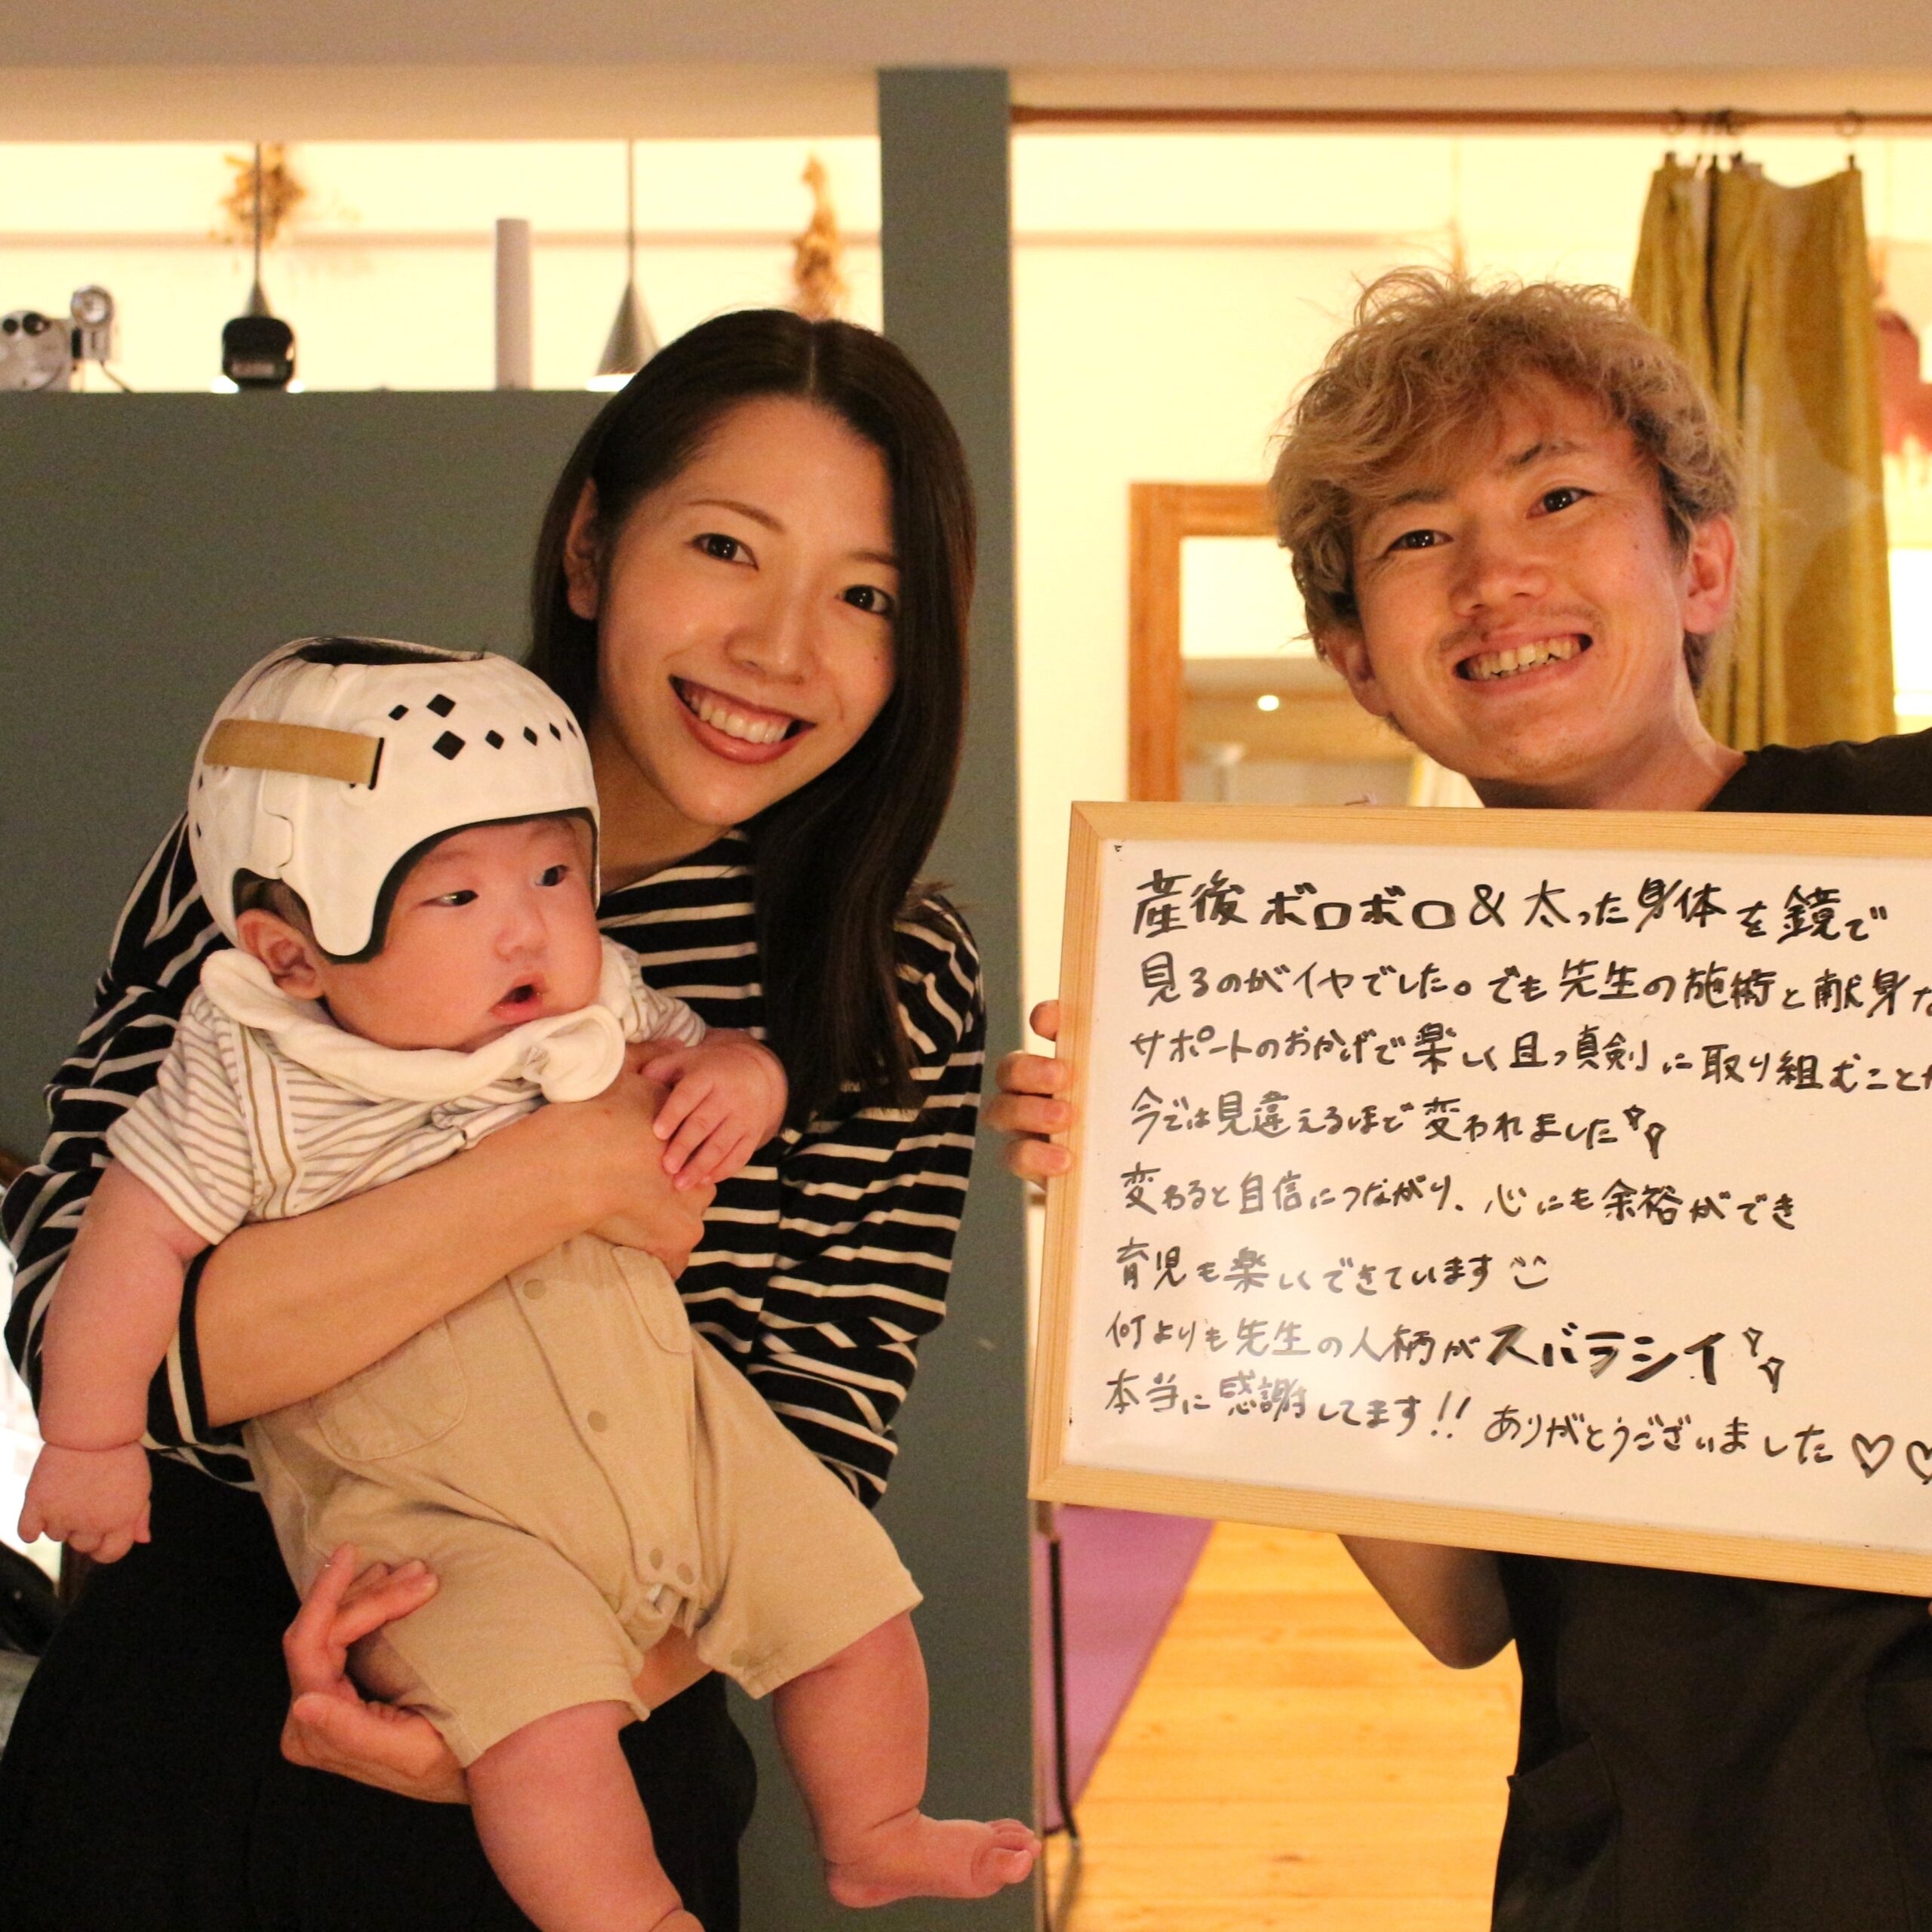 産後ボロボロ&太った身体を鏡で
見るのがイヤでした。でも先生の施術と献身な
サポートのおかげで楽しく且つ真剣に取り組むことが
今では見違えるほど変われました
変わると自信につながり、心にも余裕ができ
育児も楽しくできています
何よりも先生の人柄がスバラシイ
本当に感謝してます!! ありがとうございました♡♡